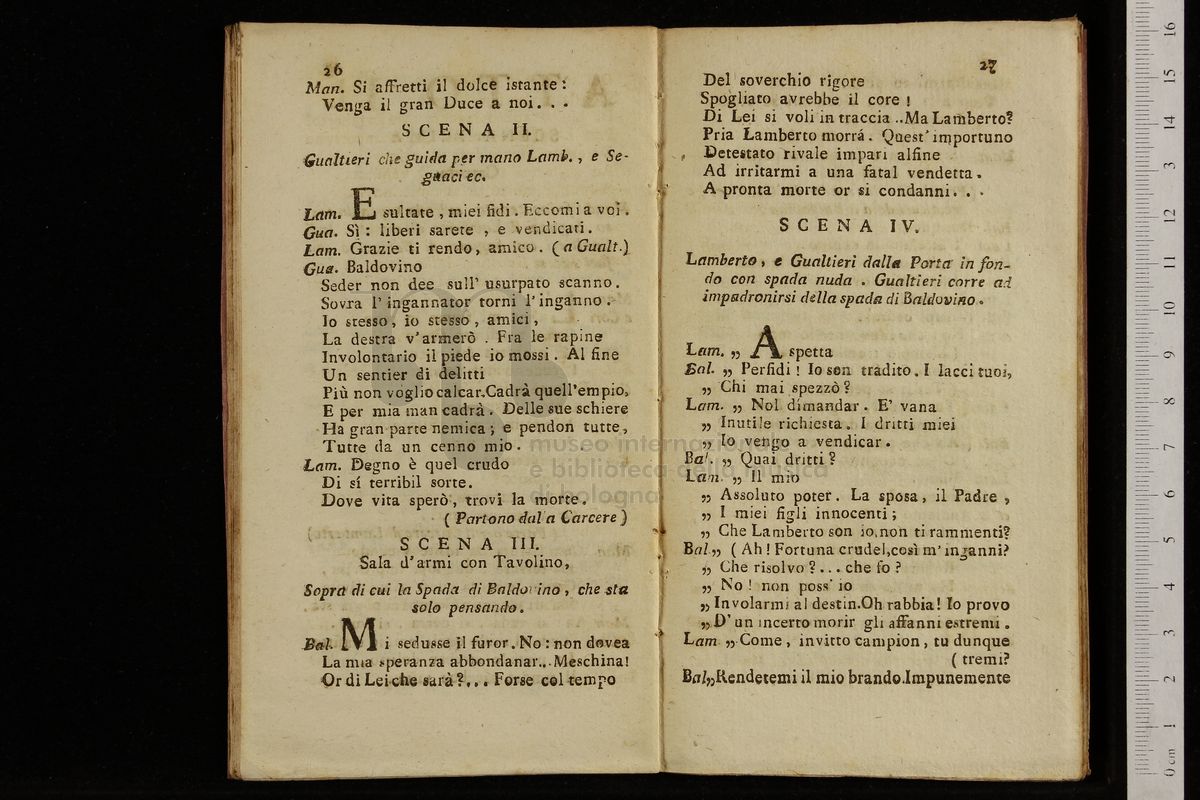 26
Man. Si affretti il dolce istante:
Venga il gran Duce a noi. . .
SCENA II.
Gualtieri che guida per mano Lamb., e Se-
guaci ec.
Lam. Esultate, miei fidi. Eccomi a voi.
Gua. Sì: liberi sarete, e vendicati.
Lam. Grazie ti rendo, amico. (a Gualt.)
Gua. Baldovino
Seder non dee sull' usurpato scanno.
Sovra l' ingannator torni l' inganno.
Io stesso, io stesso, amici,
La destra v' armerò. Fra le rapine
Involontario il piede io mossi. Al fine
Un sentier di delitti
Più non voglio calcar. Cadrà quell'empio,
E per mia man cadrà. Delle sue schiere
Ha gran parte nemica; e pendon tutte,
Tutte da un cenno mio.
Lam. Degno è quel crudo
Di sí terribil sorte.
Dove vita sperò, trovi la morte.
(Partono dal a Carcere)
SCENA III.
Sala d'armi con Tavolino,
Sopra di cui la Spada di Baldovino, che sta
solo pensando.
Bal. Mi sedusse il furor. No: non dovea
La mia speranza abbondanar... Meschina!
Or di Lei che sarà?... Forse col tempo
27
Del soverchio rigore
Spogliato avrebbe il core!
Di Lei si voli in traccia.. Ma Lamberto?
Pria Lamberto morrá. Quest' importuno
Detestato rivale impari alfine
Ad irritarmi a una fatal vendetta.
A pronta morte or si condanni. . .
SCENA IV.
Lamberto, e Gualtieri dalla Porta in fon-
do con spada nuda. Gualtieri corre ad
impadronirsi della spada di Baldovino.
Lam. „ Aspetta
Bal. „ Perfidi! Io son tradito. I lacci tuoi,
„ Chi mai spezzò?
Lam. „ Nol dimandar. E' vana
„ Inutile richiesta. I dritti miei
„ Io vengo a vendicar.
Bal. „ Quai dritti?
Lam. „ Il mio
„ Assoluto poter. La sposa, il Padre,
„ I miei figli innocenti;
„ Che Lamberto son io, non ti rammenti?
Bal „ (Ah! Fortuna crudel, così m' inganni?
„ Che risolvo?... che fo?
„ No! non poss' io
„ Involarmi al destin. Oh rabbia! Io provo
„ D' un incerto morir gli affanni estremi.
Lam „ Come, invitto campion, tu dunque
(tremi?
Bal „ Rendetemi il mio brando. Impunemente
museo internazionale
e biblioteca della musica
di bologna
0 cm 1 2 3 4 5 6 7 8 9 10 11 12 13 14 15 16